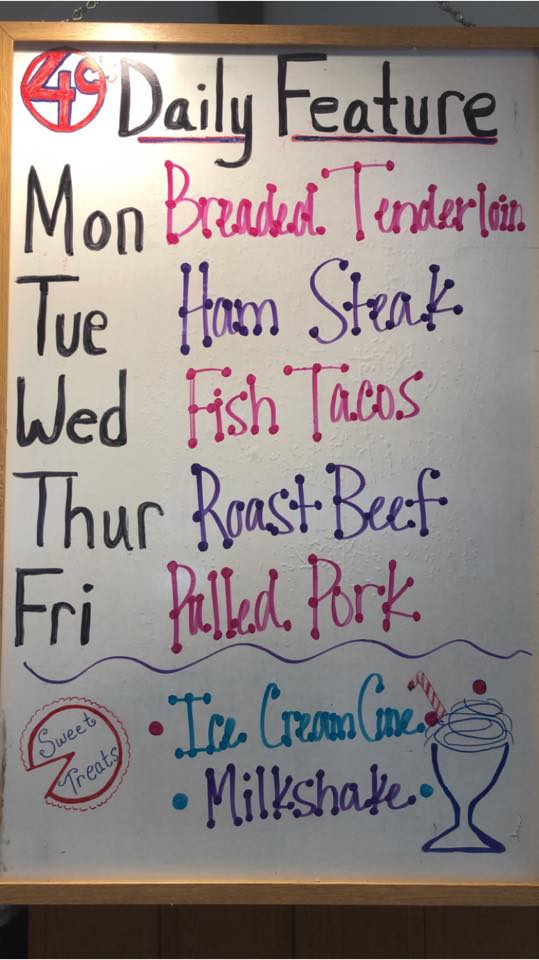 4C's Daily Feature
Mon Breaded Tenderloin
Tue Ham Steak
Wed Fish Tacos
Thur Roast Beef
Fri Pulled Pork
Sweet Treats
Ice Cream Cone
Milkshake